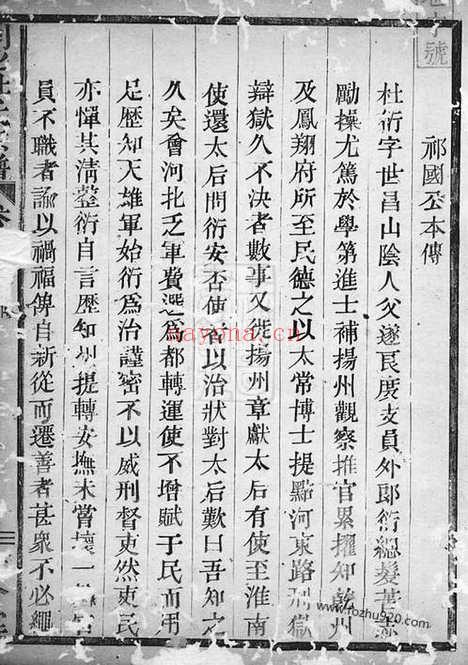 號
祁國公本傳
杜衍字世昌山陰人父遂良度支員外郎衍總髮苦志
勵操尤篤於學第進士補揚州觀察推官累擢知乾州
及鳳翔府所至民德之以太常博士提點河東路刑獄
辯獄久不決者數事又徙揚州章獻太后有使至淮南
使還太后問衍安否使者以治狀對太后歎曰吾知之
久矣會河北乏軍費選為都轉運使不增賦于民而用
足歷知天雄軍始衍為治謹密不以威刑督吏然吏民
亦憚其清整衍自言歷知州提轉安撫未嘗壞一官
員不職者諭以禍福俾自新從而遷善者甚衆不必繩
naysna.cn
www.rozhu920.com